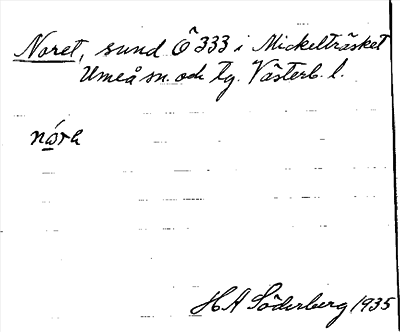 Noret, sund Ö 333 i Mickelträsket
Umeå sn. och tg. Västerb. l.
nóra
H A Söderberg 1935